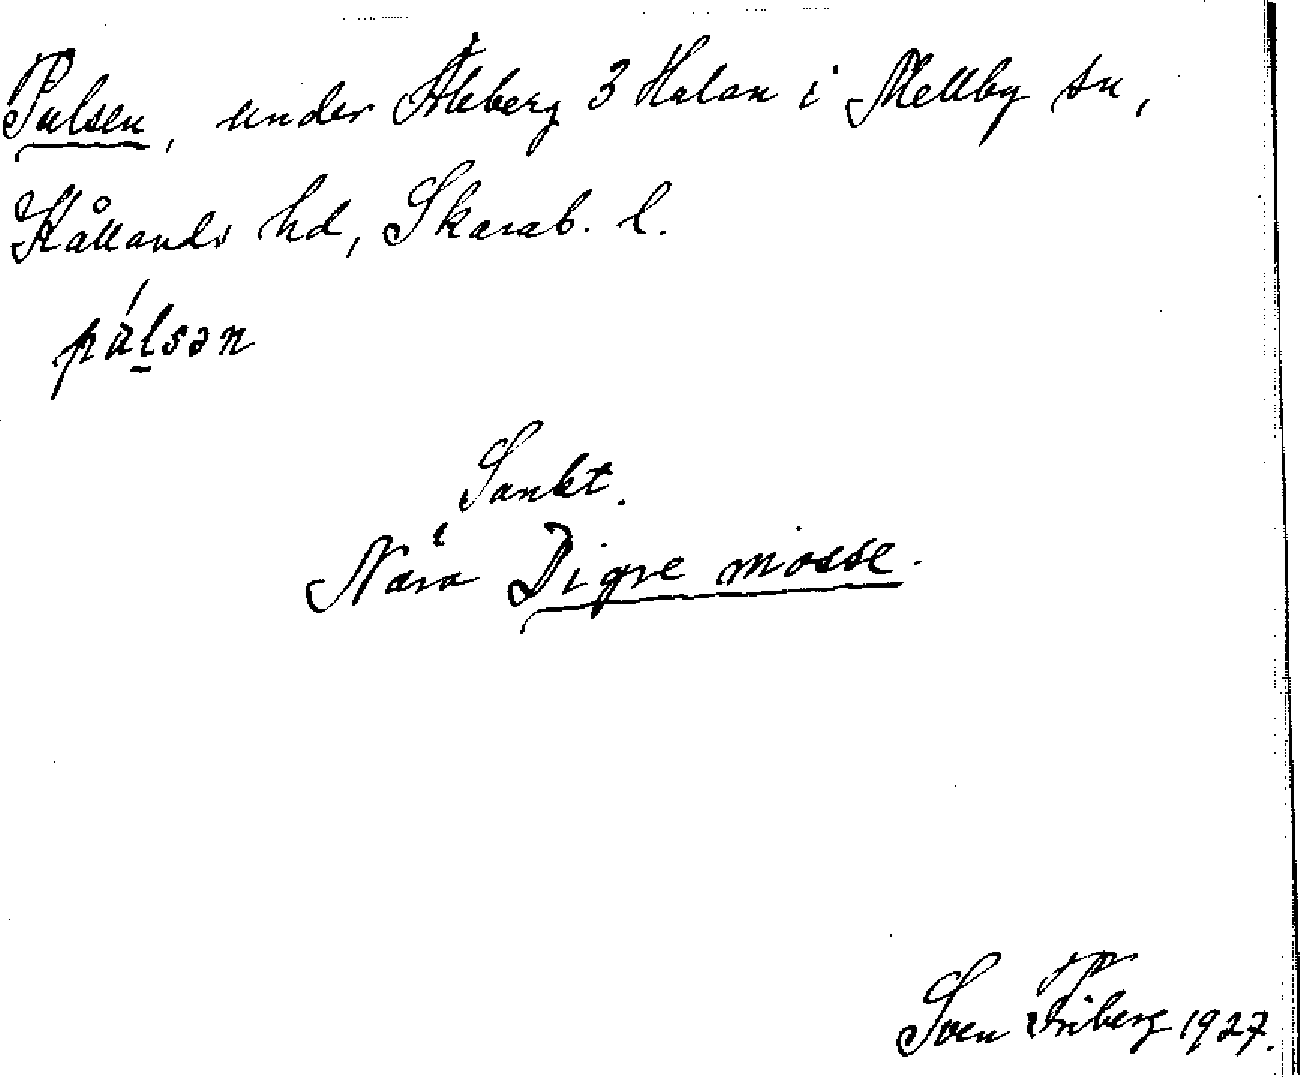 Pulsen, under Åleberg 3 Halan i Mellby sn,
Kållands hd, Skarab. l.
púlsən
Sankt.
Nära Digre mosse.
Sven Friberg 1927.